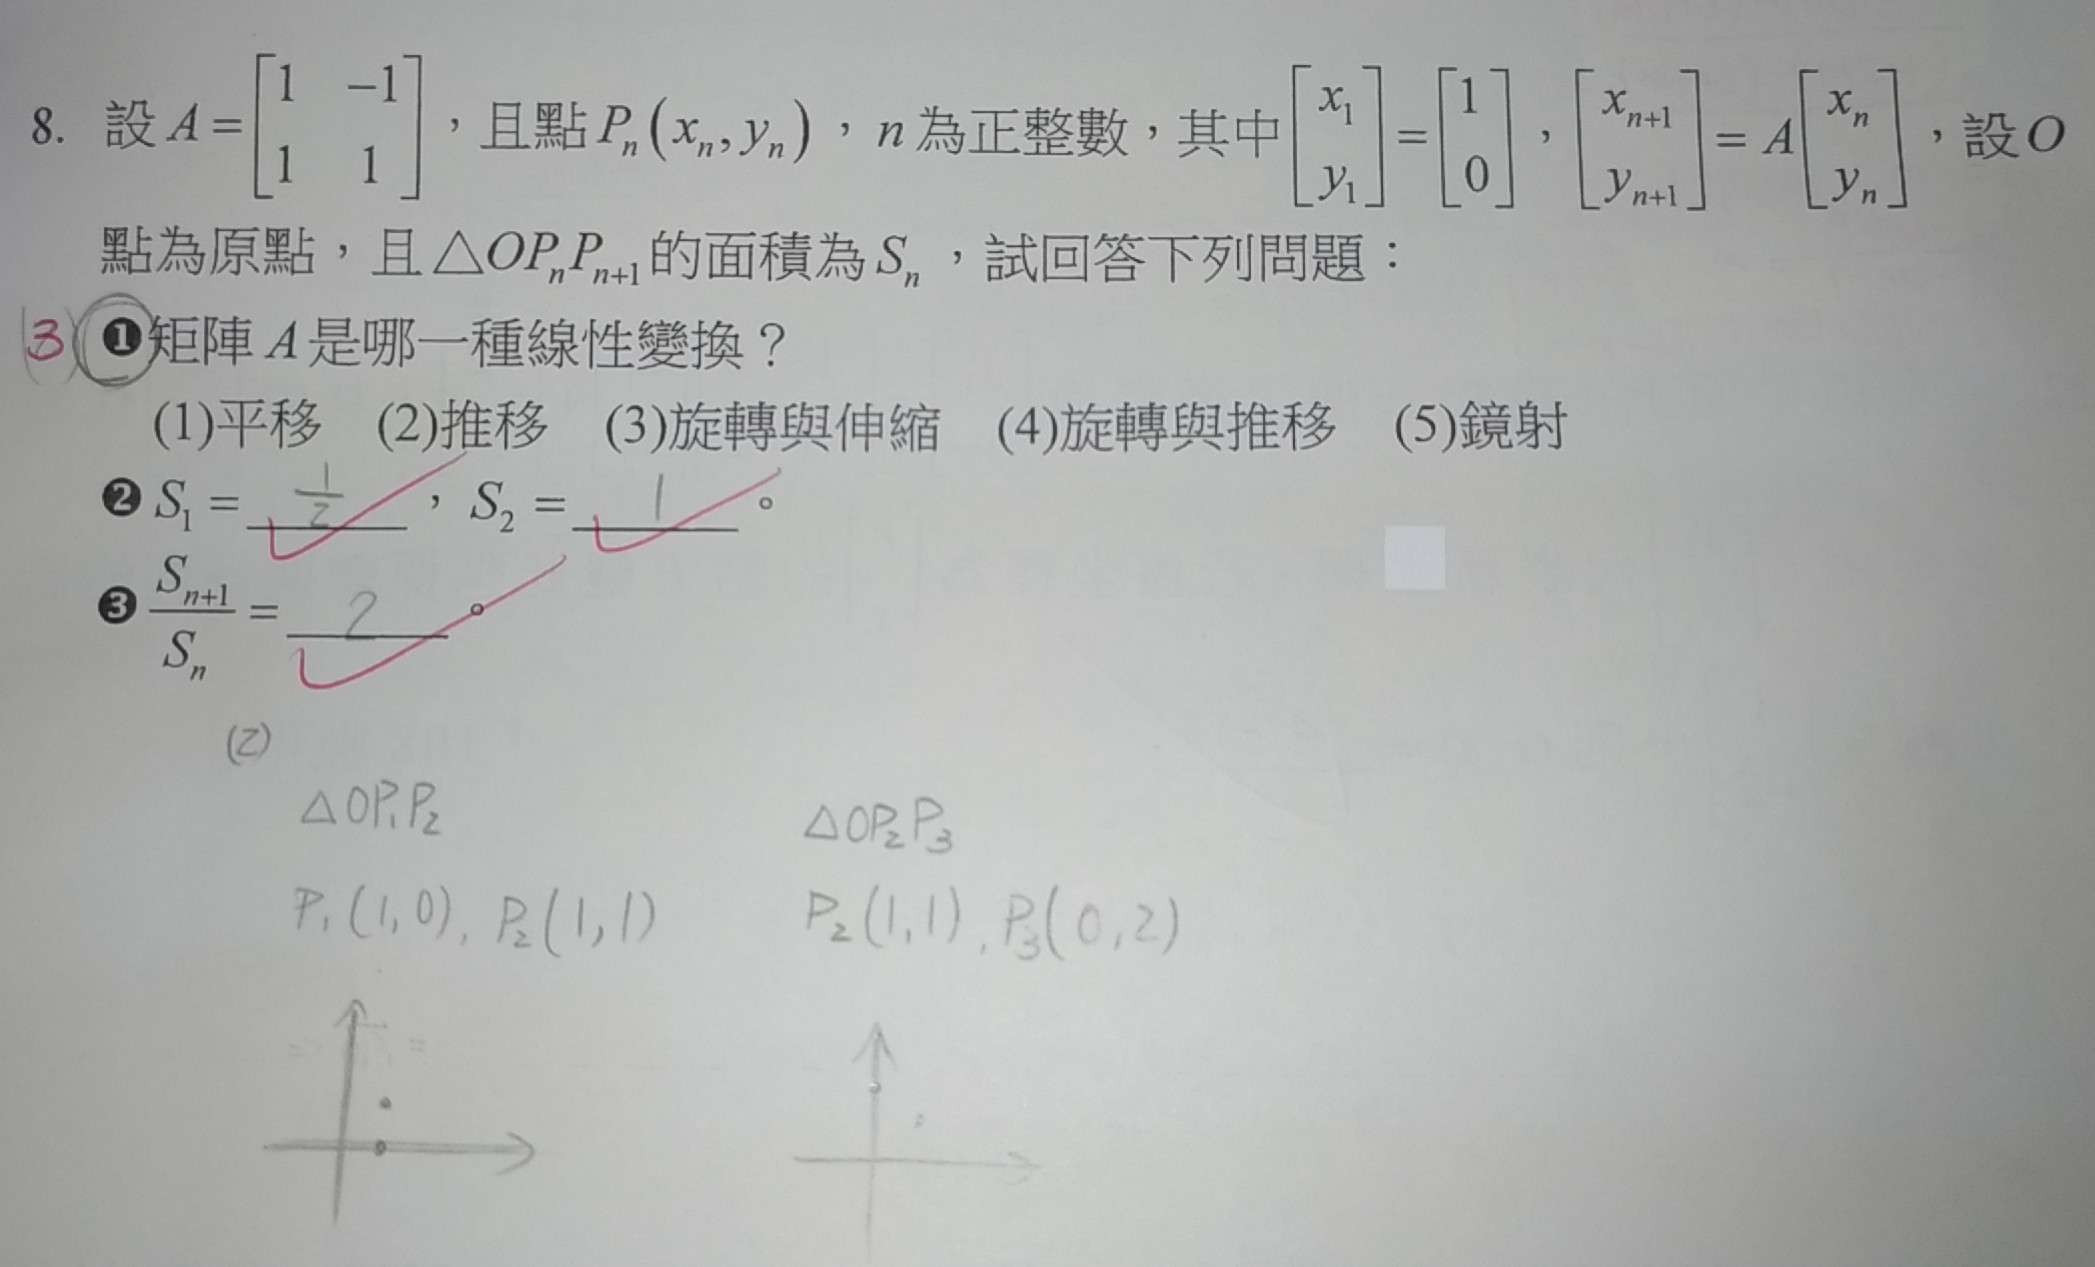 8. 設 A = [1 -1; 1 1],且點 Pₙ(xₙ, yₙ),n 為正整數,其中 [x₁; y₁] = [1; 0],[xₙ₊₁; yₙ₊₁] = A [xₙ; yₙ],設 O
點為原點,且 △OPₙPₙ₊₁ 的面積為 Sₙ,試回答下列問題:
(3) ❶ 矩陣 A 是哪一種線性變換?
(1)平移 (2)推移 (3)旋轉與伸縮 (4)旋轉與推移 (5)鏡射
❷ S₁ = 1/2,S₂ = 1。
❸ Sₙ₊₁/Sₙ = 2。
(2)
△OP₁P₂ △OP₂P₃
P₁(1,0), P₂(1,1) P₂(1,1), P₃(0,2)